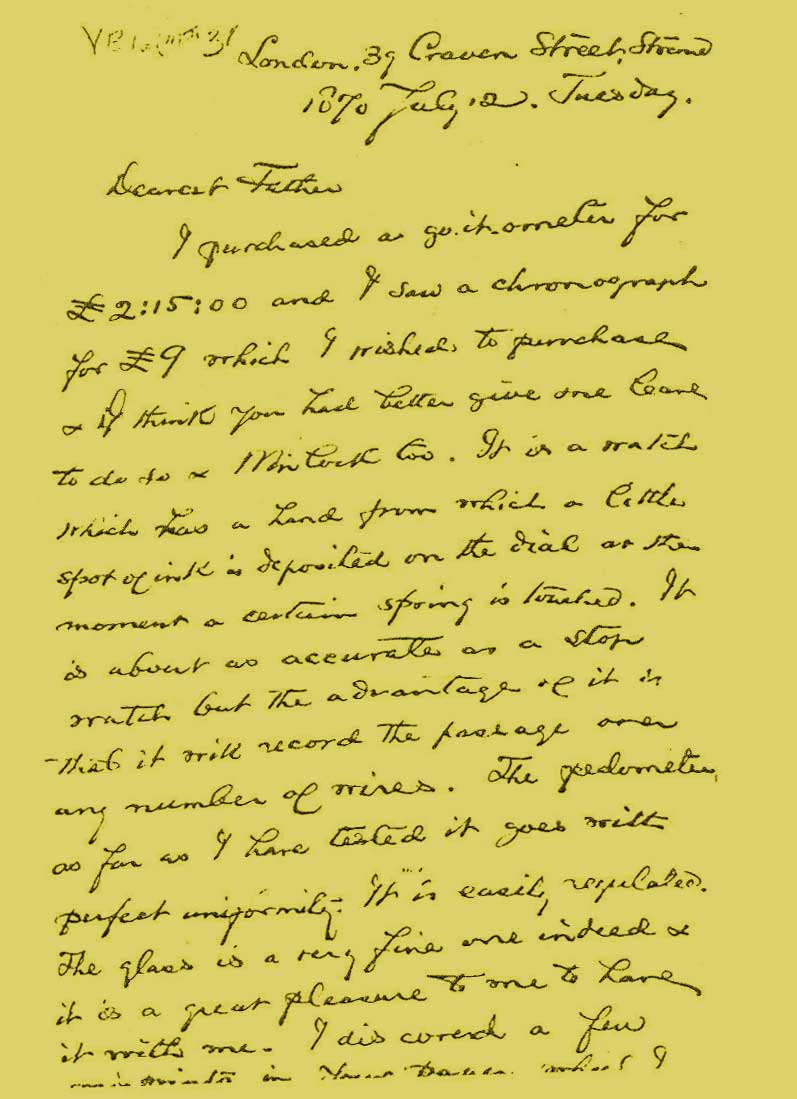 London. 39 Craven Street, Strand
1870 July 12. Tuesday.
Dearest Father
I purchased a go.it.ometer for
£2:15:00 and I saw a chronograph
for £9 which I wished to purchase
& I think you had better give me leave
to do so & Winlock too. It is a watch
which has a hand from which a little
spot of ink is deposited on the dial at the
moment a certain spring is touched. It
is about as accurate as a stop
watch but the advantage of it is
that it will record the passage over
any number of wires. The pedometer,
as far as I have tested it goes with
perfect uniformity. It is easily regulated.
The glass is a very fine one indeed &
it is a great pleasure to me to have
it with me. I discovered a few
in